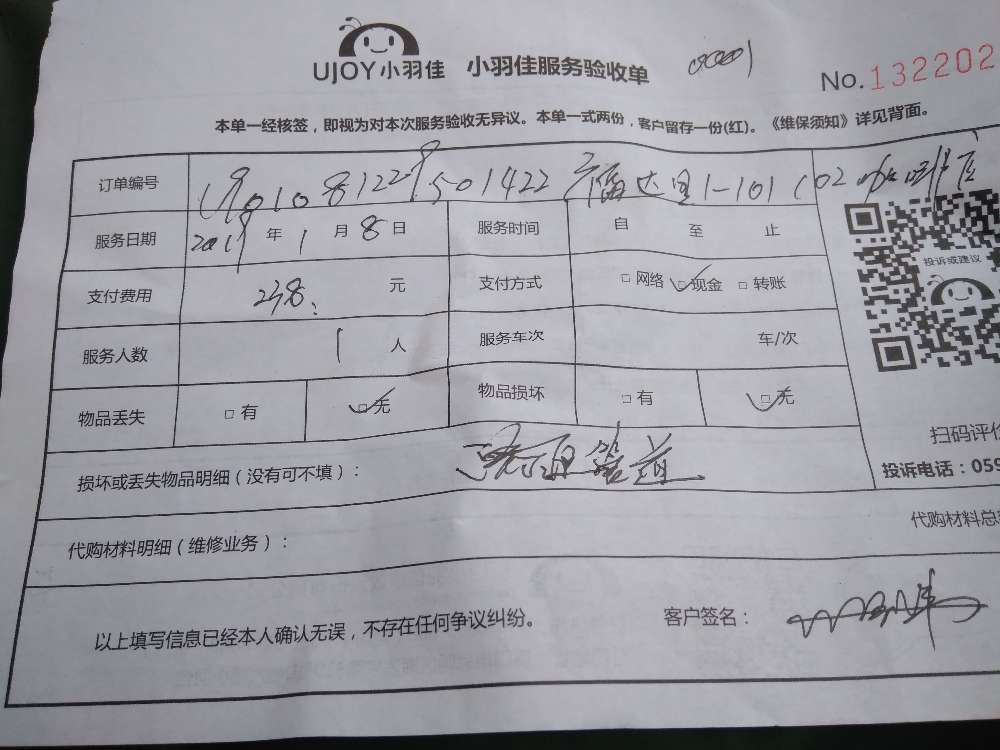 UJOY小羽佳 小羽佳服务验收单 00001 No.132202
本单一经核签，即视为对本次服务验收无异议。本单一式两份，客户留存一份(红)。《维保须知》详见背面。
订单编号 1-101 102 咖啡店
服务日期 2019 年 1 月 8 日 服务时间 自 至 止
投诉或建议
支付费用 238. 元 支付方式 □网络 □现金 □转账
服务人数 1 人 服务车次 车/次
物品丢失 □有 □无 物品损坏 □有 □无
扫码评价
损坏或丢失物品明细（没有可不填）： 管道
投诉电话：059
代购材料总
代购材料明细（维修业务）：
以上填写信息已经本人确认无误，不存在任何争议纠纷。 客户签名：